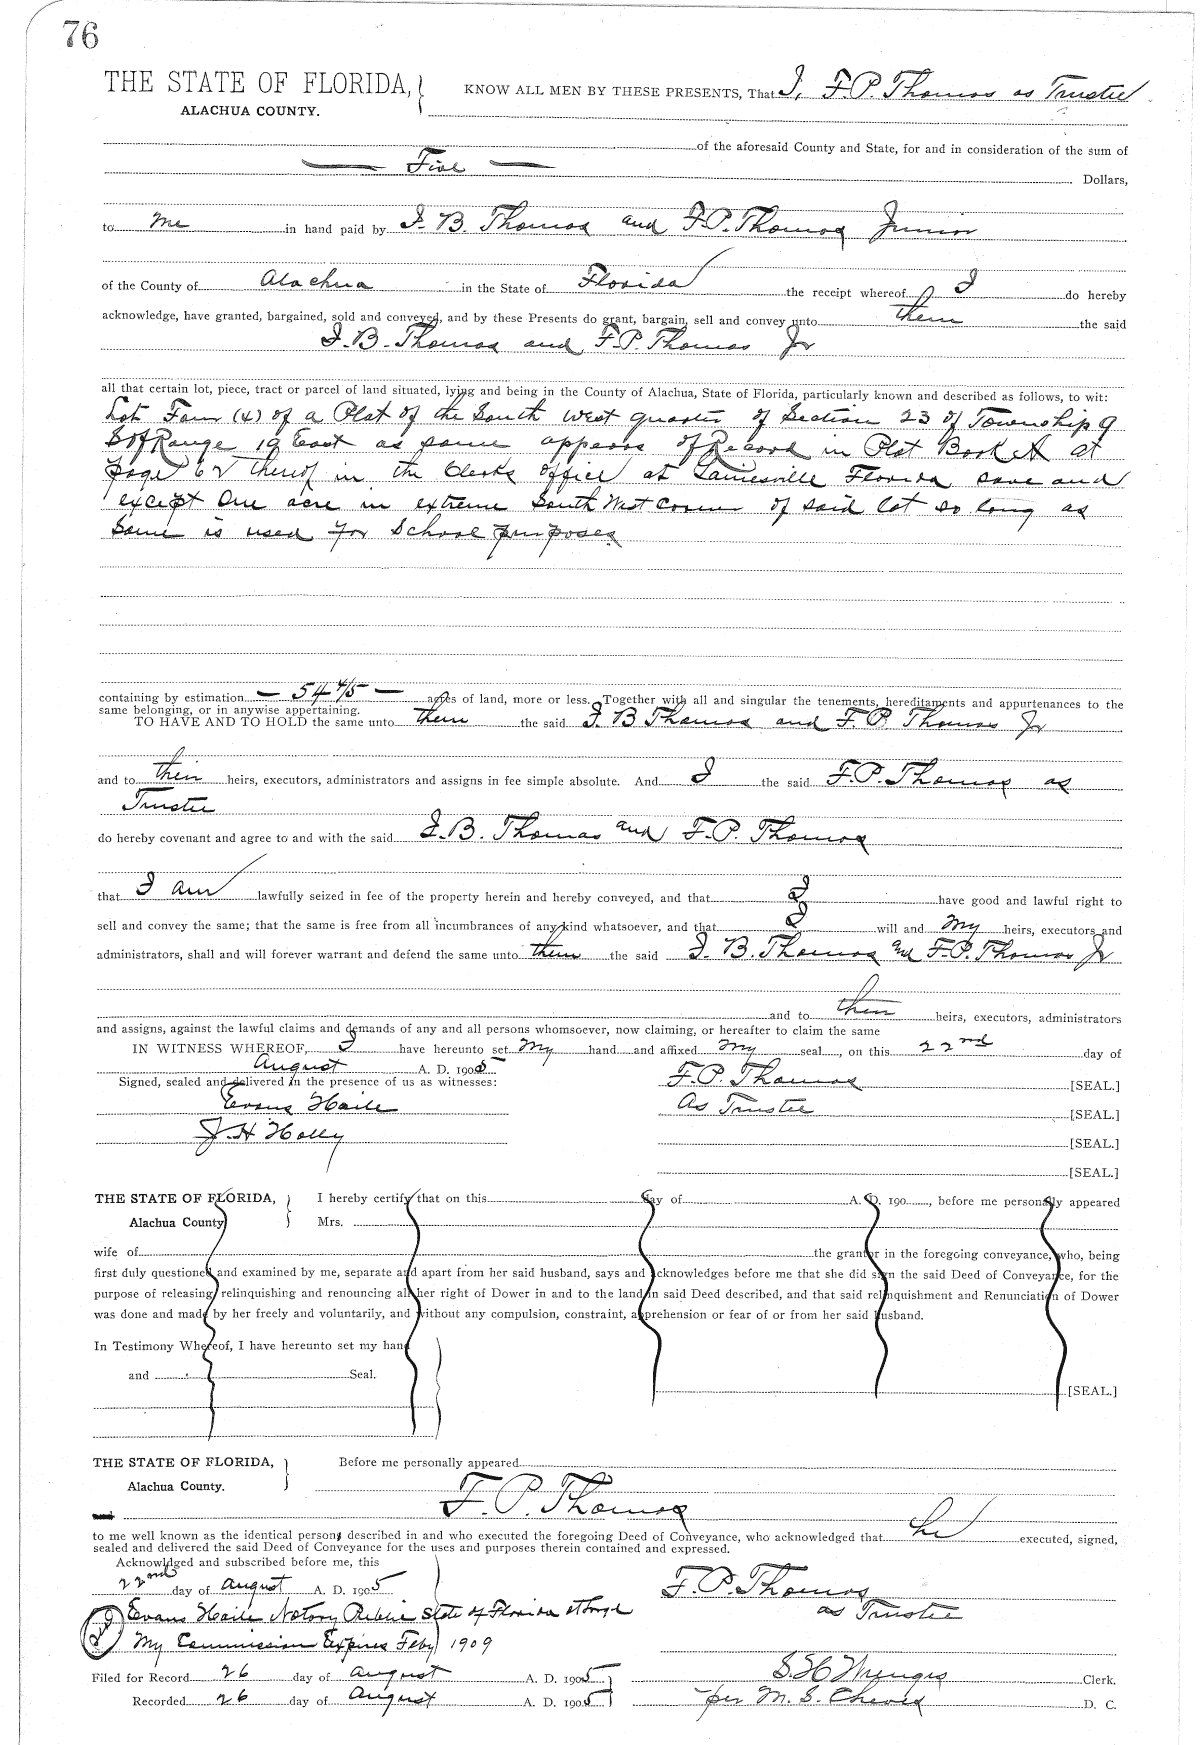 76
THE STATE OF FLORIDA, KNOW ALL MEN BY THESE PRESENTS, That I, F.P. Thomas as Trustee
ALACHUA COUNTY.
of the aforesaid County and State, for and in consideration of the sum of
Five Dollars,
to me in hand paid by I. B. Thomas and F.P. Thomas Junior
of the County of Alachua in the State of Florida the receipt whereof I do hereby
acknowledge, have granted, bargained, sold and conveyed, and by these Presents do grant, bargain, sell and convey unto them the said
I. B. Thomas and F.P. Thomas Jr
all that certain lot, piece, tract or parcel of land situated, lying and being in the County of Alachua, State of Florida, particularly known and described as follows, to wit:
Lot Four (4) of a Plat of the South West quarter of Section 23 of Township 9
S of Range 19 East as same appears of Record in Plat Book A at
page 62 thereof in the Clerks office at Gainesville Florida save and
except One acre in extreme South West Corner of said lot so long as
same is used for School purposes
containing by estimation — 54 4/5 — acres of land, more or less. Together with all and singular the tenements, hereditaments and appurtenances to the
same belonging, or in anywise appertaining.
TO HAVE AND TO HOLD the same unto them the said I B Thomas and F.P. Thomas Jr
and to their heirs, executors, administrators and assigns in fee simple absolute. And I the said F.P. Thomas as
Trustee
do hereby covenant and agree to and with the said I.B. Thomas and F.P. Thomas
that I am lawfully seized in fee of the property herein and hereby conveyed, and that I have good and lawful right to
sell and convey the same; that the same is free from all incumbrances of any kind whatsoever, and that I will and My heirs, executors and
administrators, shall and will forever warrant and defend the same unto them the said I. B. Thomas and F.P. Thomas Jr
and to their heirs, executors, administrators
and assigns, against the lawful claims and demands of any and all persons whomsoever, now claiming, or hereafter to claim the same
IN WITNESS WHEREOF, I have hereunto set My hand and affixed My seal, on this 22nd day of
August A. D. 1905
Signed, sealed and delivered in the presence of us as witnesses: F.P. Thomas [SEAL.]
Evans Haile As Trustee [SEAL.]
J. H. Holly [SEAL.]
[SEAL.]
THE STATE OF FLORIDA, I hereby certify that on this day of A. D. 190 , before me personally appeared
Alachua County Mrs.
wife of the grantor in the foregoing conveyance, who, being
first duly questioned and examined by me, separate and apart from her said husband, says and acknowledges before me that she did sign the said Deed of Conveyance, for the
purpose of releasing, relinquishing and renouncing all her right of Dower in and to the land in said Deed described, and that said relinquishment and Renunciation of Dower
was done and made by her freely and voluntarily, and without any compulsion, constraint, apprehension or fear of or from her said husband.
In Testimony Whereof, I have hereunto set my hand
and Seal.
[SEAL.]
THE STATE OF FLORIDA, Before me personally appeared
Alachua County.
F. P. Thomas
to me well known as the identical person, described in and who executed the foregoing Deed of Conveyance, who acknowledged that he executed, signed,
sealed and delivered the said Deed of Conveyance for the uses and purposes therein contained and expressed.
Acknowldged and subscribed before me, this
22nd day of August A. D. 1905 F. P. Thomas
Evans Haile Notary Public State of Florida at Large as Trustee
My Commission Expires Feby 1909
Filed for Record 26 day of August A. D. 1905 S. H. Wienges Clerk.
Recorded 26 day of August A. D. 1905 per M. S. Cheves D. C.